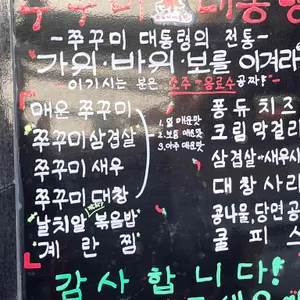 쭈꾸미 대통령
-쭈꾸미 대통령의 전통-
가위·바위·보를 이겨라
-이기시는 분은 소주·음료수 공짜!
매운 쭈꾸미
쭈꾸미삼겹살
쭈꾸미 새우
쭈꾸미 대창
날치알 볶음밥
계란찜
1. 덜 매운맛
2. 보통 매운맛
3. 아주 매운맛
퐁듀치즈
크림막걸리
삼겹살·새우사
대창사리
콩나물,당면공
쿨피스
감사합니다!